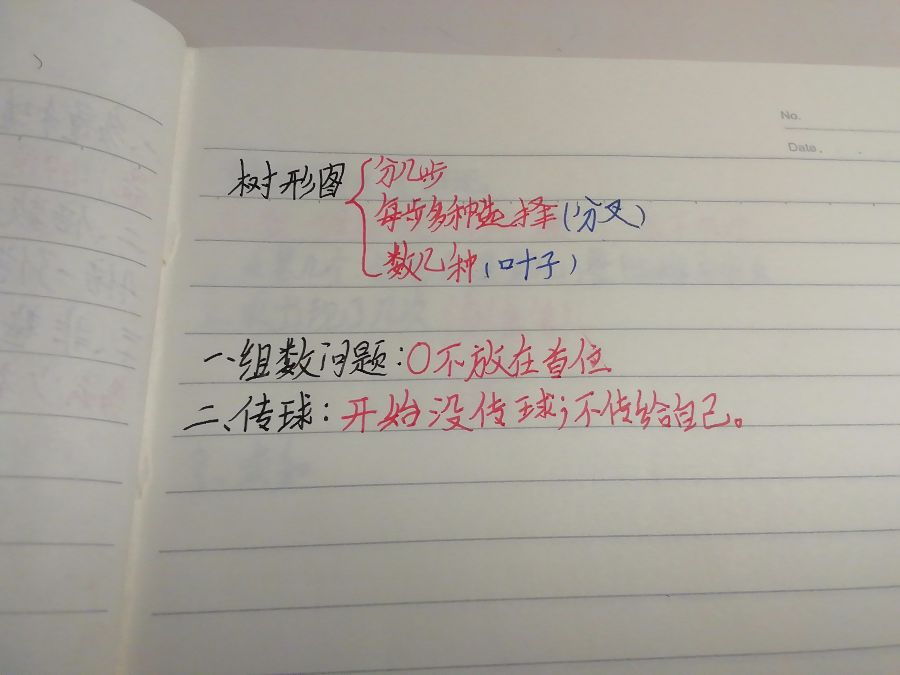 No.
Date.
树形图 { 分几步
每步多种选择(分叉)
数几种(叶子)
一、组数问题:0不放在首位
二、传球:开始没传球;不传给自己。